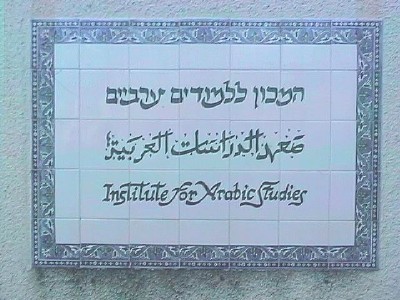 המכון ללמודים ערביים
معهد الدراسات العربية
Institute for Arabic Studies